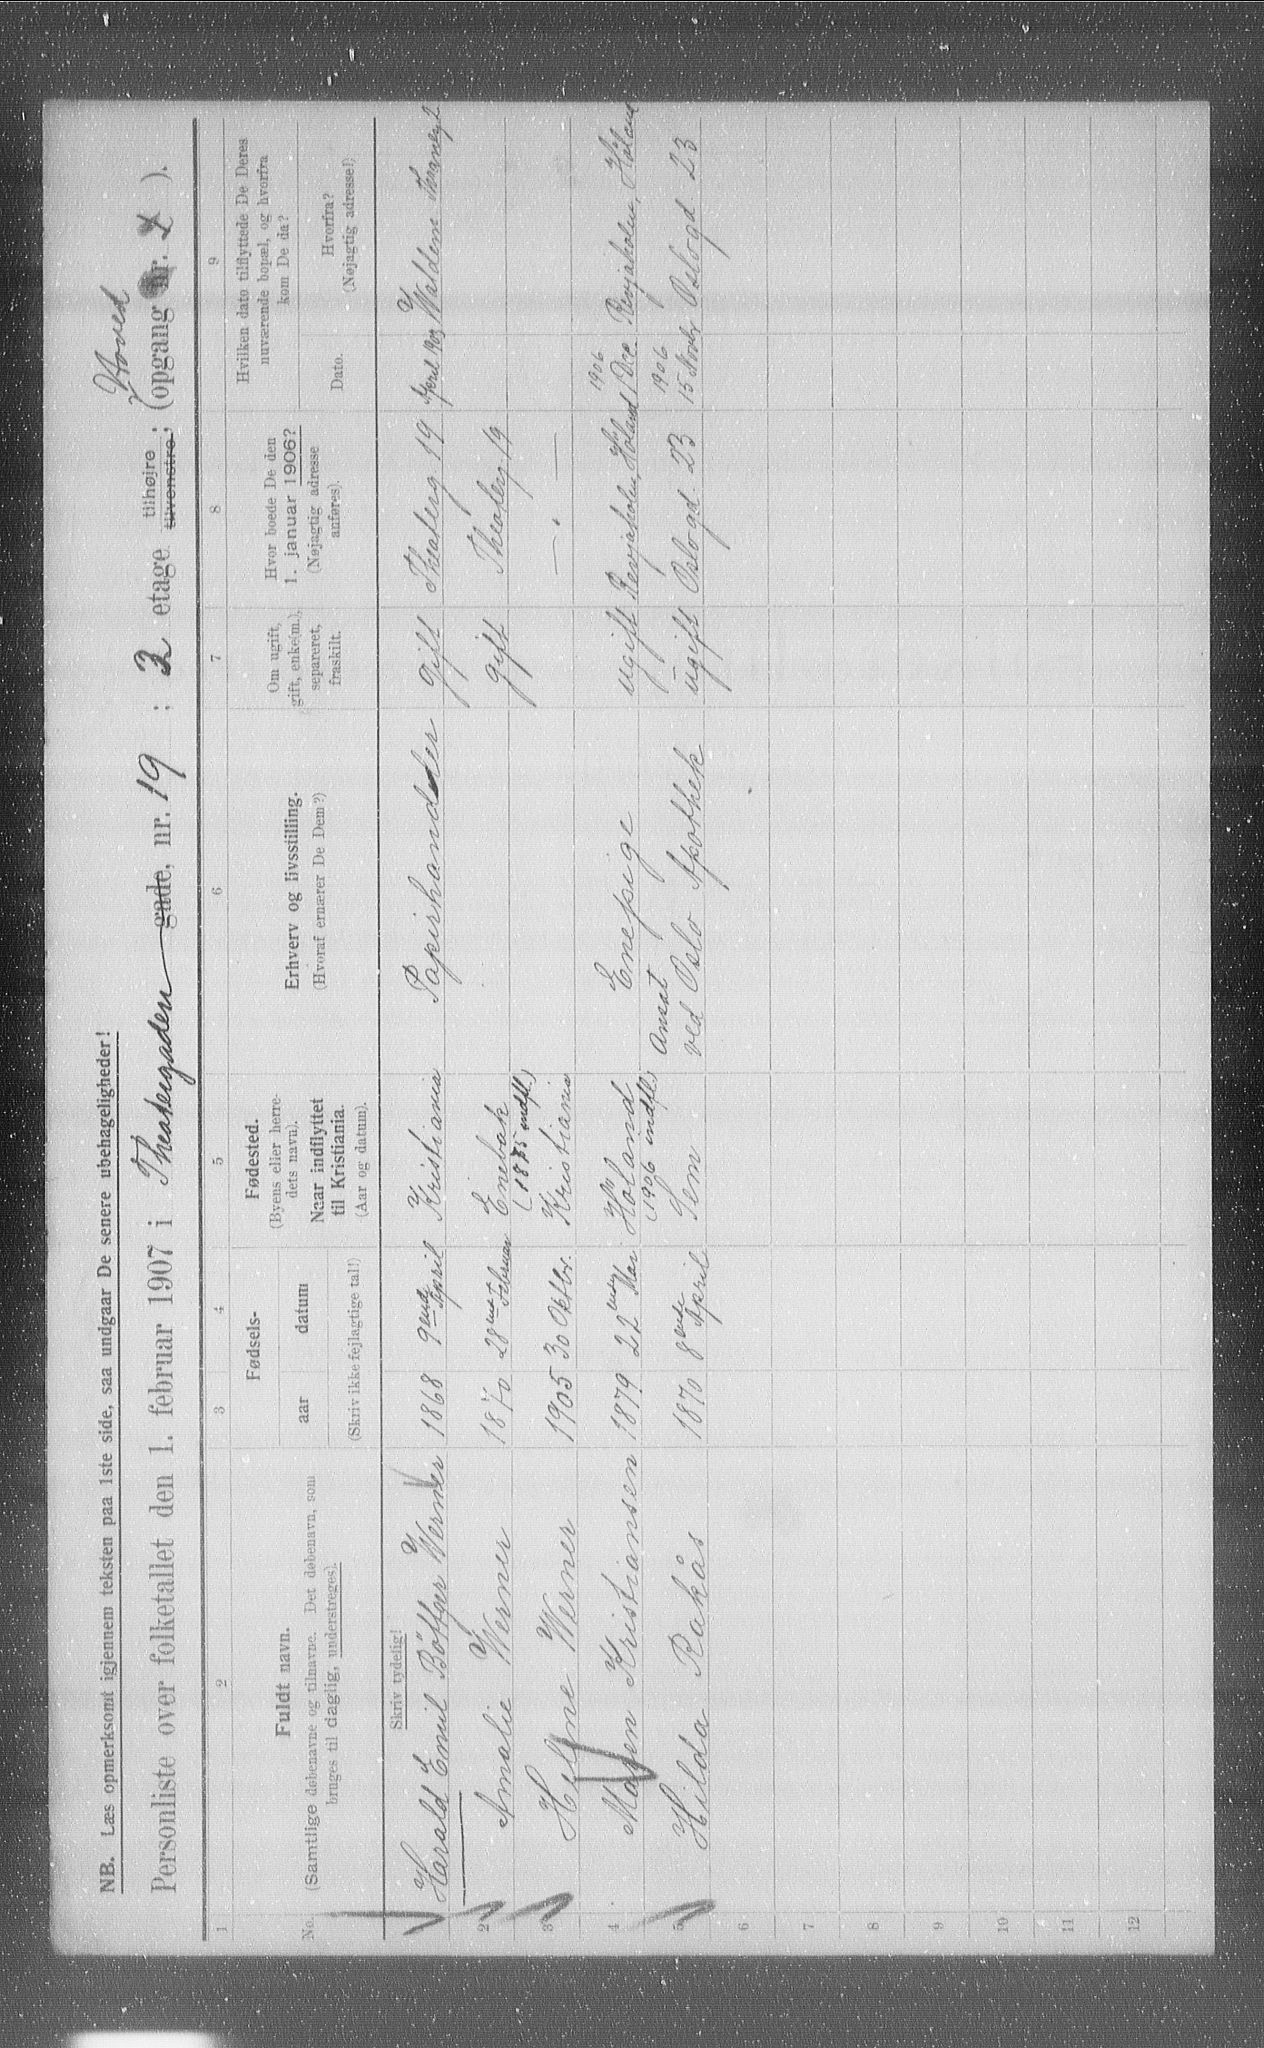 NB. Læs opmerksomt igjennem teksten paa 1ste side, saa undgaar De senere ubehageligheder!
Hoved
Personliste over folketallet den 1. februar 1907 i Theatergaden gade, nr. 19 ; 3 etage tilhøjre tilvenstre; (opgang nr. ).
1 2 3 4 5 6 7 8 9
No.
Fuldt navn.
(Samtlige døbenavne og tilnavne. Det døbenavn, som
bruges til daglig, understreges).
Fødsels-
aar datum
(Skriv ikke fejlagtige tal!)
Fødested.
(Byens eller herre-
dets navn).
Naar indflyttet
til Kristiania.
(Aar og datum).
Erhverv og livsstilling.
(Hvoraf ernærer De Dem?)
Om ugift,
gift, enke(m.),
separeret,
fraskilt.
Hvor boede De den
1. januar 1906?
(Nøjagtig adresse
anføres).
Hvilken dato tilflyttede De Deres
nuværende bopæl, og hvorfra
kom De da?
Dato.
Hvorfra?
(Nøjagtig adresse!)
Skriv tydelig!
Harald Emil Böffer Werner 1868 9ende April Kristiania Papirhandler gift Theaterg. 19 April 903 Waldem Thranesgt
2 Amalie Werner 1870 28 Februar Enebak (1875 indfl.) gift Theaterg. 19
3 Helene Werner 1905 30 Oktbr. Kristiania — " —
4 Maren Kristiansen 1879 22 Mai Höland (1906 indfl.) Enepige ugift Revjaholen, Höland 1906 Dec. Revjaholen, Höland
5 Hilda Rakås 1870 8ende April Sem Ansat ved Oslo Apothek ugift Oslogd. 23 1906 15 Novbr Oslogd 23
6
7
8
9
10
11
12